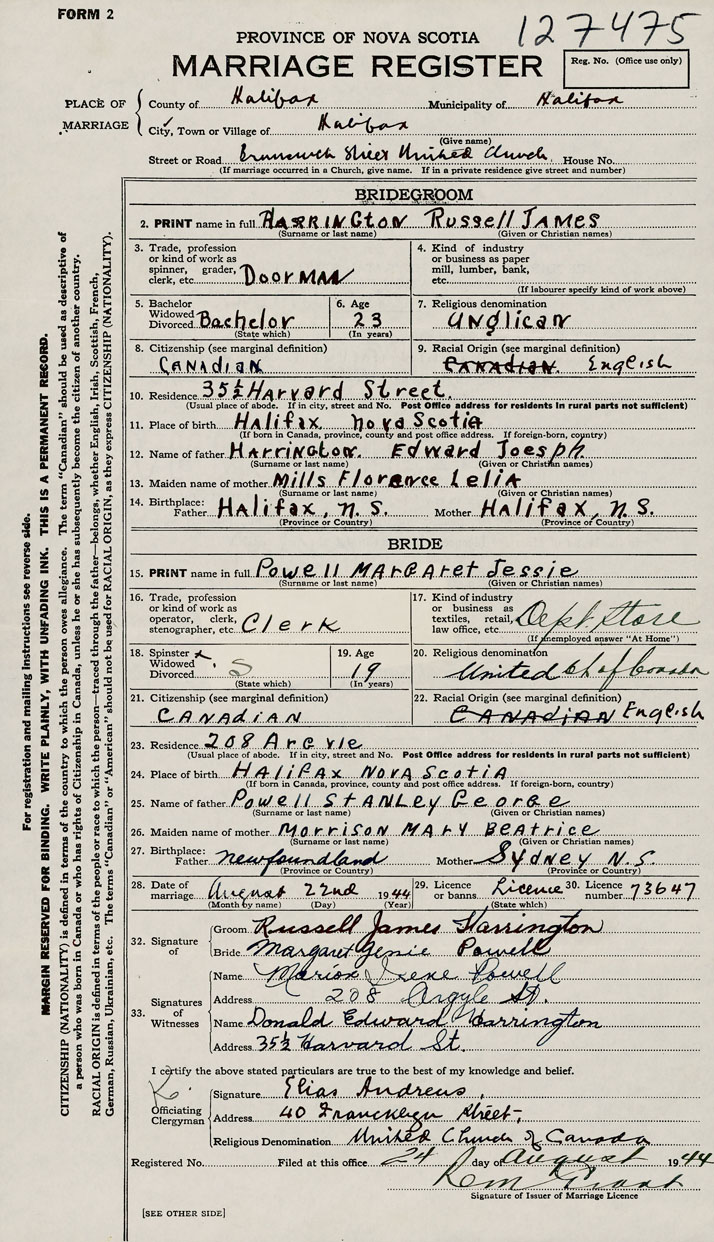 FORM 2
127475
PROVINCE OF NOVA SCOTIA
MARRIAGE REGISTER
Reg. No. (Office use only)
PLACE OF MARRIAGE
County of Halifax Municipality of Halifax
City, Town or Village of Halifax
(Give name)
Street or Road Brunswick Street United Church House No.
(If marriage occurred in a Church, give name. If in a private residence give street and number)
BRIDEGROOM
2. PRINT name in full HARRINGTON Russell JAMES
(Surname or last name) (Given or Christian names)
3. Trade, profession or kind of work as spinner, grader, clerk, etc. DOORMAN
4. Kind of industry or business as paper mill, lumber, bank, etc.
(If labourer specify kind of work above)
5. Bachelor Widowed Divorced Bachelor
(State which)
6. Age 23
(In years)
7. Religious denomination Anglican
8. Citizenship (see marginal definition) CANADIAN
9. Racial Origin (see marginal definition) CANADIAN. English
10. Residence 35½ Harvard Street.
(Usual place of abode. If in city, street and No. Post Office address for residents in rural parts not sufficient)
11. Place of birth Halifax Nova Scotia
(If born in Canada, province, county and post office address. If foreign-born, country)
12. Name of father Harrington. Edward Joesph.
(Surname or last name) (Given or Christian names)
13. Maiden name of mother Mills Florence Lelia
(Surname or last name) (Given or Christian names)
14. Birthplace: Father Halifax, N.S. Mother Halifax, N.S.
(Province or Country) (Province or Country)
BRIDE
15. PRINT name in full Powell MARGARET Jessie
(Surname or last name) (Given or Christian names)
16. Trade, profession or kind of work as operator, clerk, stenographer, etc. Clerk
17. Kind of industry or business as textiles, retail, law office, etc. Dept Store
(If unemployed answer "At Home")
18. Spinster x Widowed Divorced S
(State which)
19. Age 19
(In years)
20. Religious denomination United Ch of Canada
21. Citizenship (see marginal definition) CANADIAN
22. Racial Origin (see marginal definition) CANADIAN English
23. Residence 208 Argyle
(Usual place of abode. If in city, street and No. Post Office address for residents in rural parts not sufficient)
24. Place of birth HALIFAX NOVA SCOTIA
(If born in Canada, province, county and post office address. If foreign-born, country)
25. Name of father Powell STANLEY George
(Surname or last name) (Given or Christian names)
26. Maiden name of mother Morrison MARY BEATRICE
(Surname or last name) (Given or Christian names)
27. Birthplace: Father newfoundland Mother Sydney N.S.
(Province or Country) (Province or Country)
28. Date of marriage August 22nd 1944
(Month by name) (Day) (Year)
29. Licence or banns. Licence
(State which)
30. Licence number 73647
32. Signature of
Groom Russell James Harrington
Bride Margaret Jessie Powell
33. Signatures of Witnesses
Name Marion Irene Powell
Address 208 Argyle St.
Name Donald Edward Harrington
Address 35½ Harvard St.
I certify the above stated particulars are true to the best of my knowledge and belief.
Officiating Clergyman
Signature Elias Andrews,
Address 40 Francklyn Street,
Religious Denomination United Church of Canada
Registered No. Filed at this office 24 day of August 1944
Signature of Issuer of Marriage Licence
[SEE OTHER SIDE]
For registration and mailing instructions see reverse side.
MARGIN RESERVED FOR BINDING. WRITE PLAINLY, WITH UNFADING INK. THIS IS A PERMANENT RECORD.
CITIZENSHIP (NATIONALITY) is defined in terms of the country to which the person owes allegiance. The term "Canadian" should be used as descriptive of
a person who was born in Canada or who has rights of Citizenship in Canada, unless he or she has subsequently become the citizen of another country.
RACIAL ORIGIN is defined in terms of the people or race to which the person—traced through the father—belongs, whether English, Irish, Scottish, French,
German, Russian, Ukrainian, etc. The terms "Canadian" or "American" should not be used for RACIAL ORIGIN, as they express CITIZENSHIP (NATIONALITY).